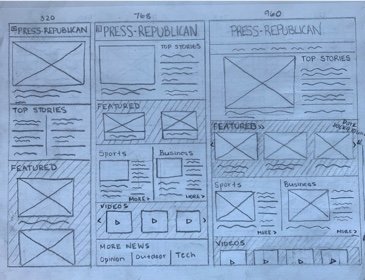 320
PRESS-REPUBLICAN
TOP STORIES
FEATURED
768
PRESS-REPUBLICAN
TOP STORIES
FEATURED
Sports
Business
MORE>
MORE>
VIDEOS
MORE NEWS
Opinion
Outdoor
Tech
960
PRESS-REPUBLICAN
TOP STORIES
FEATURED>>
Sports
Business
MORE>
MORE>
VIDEOS